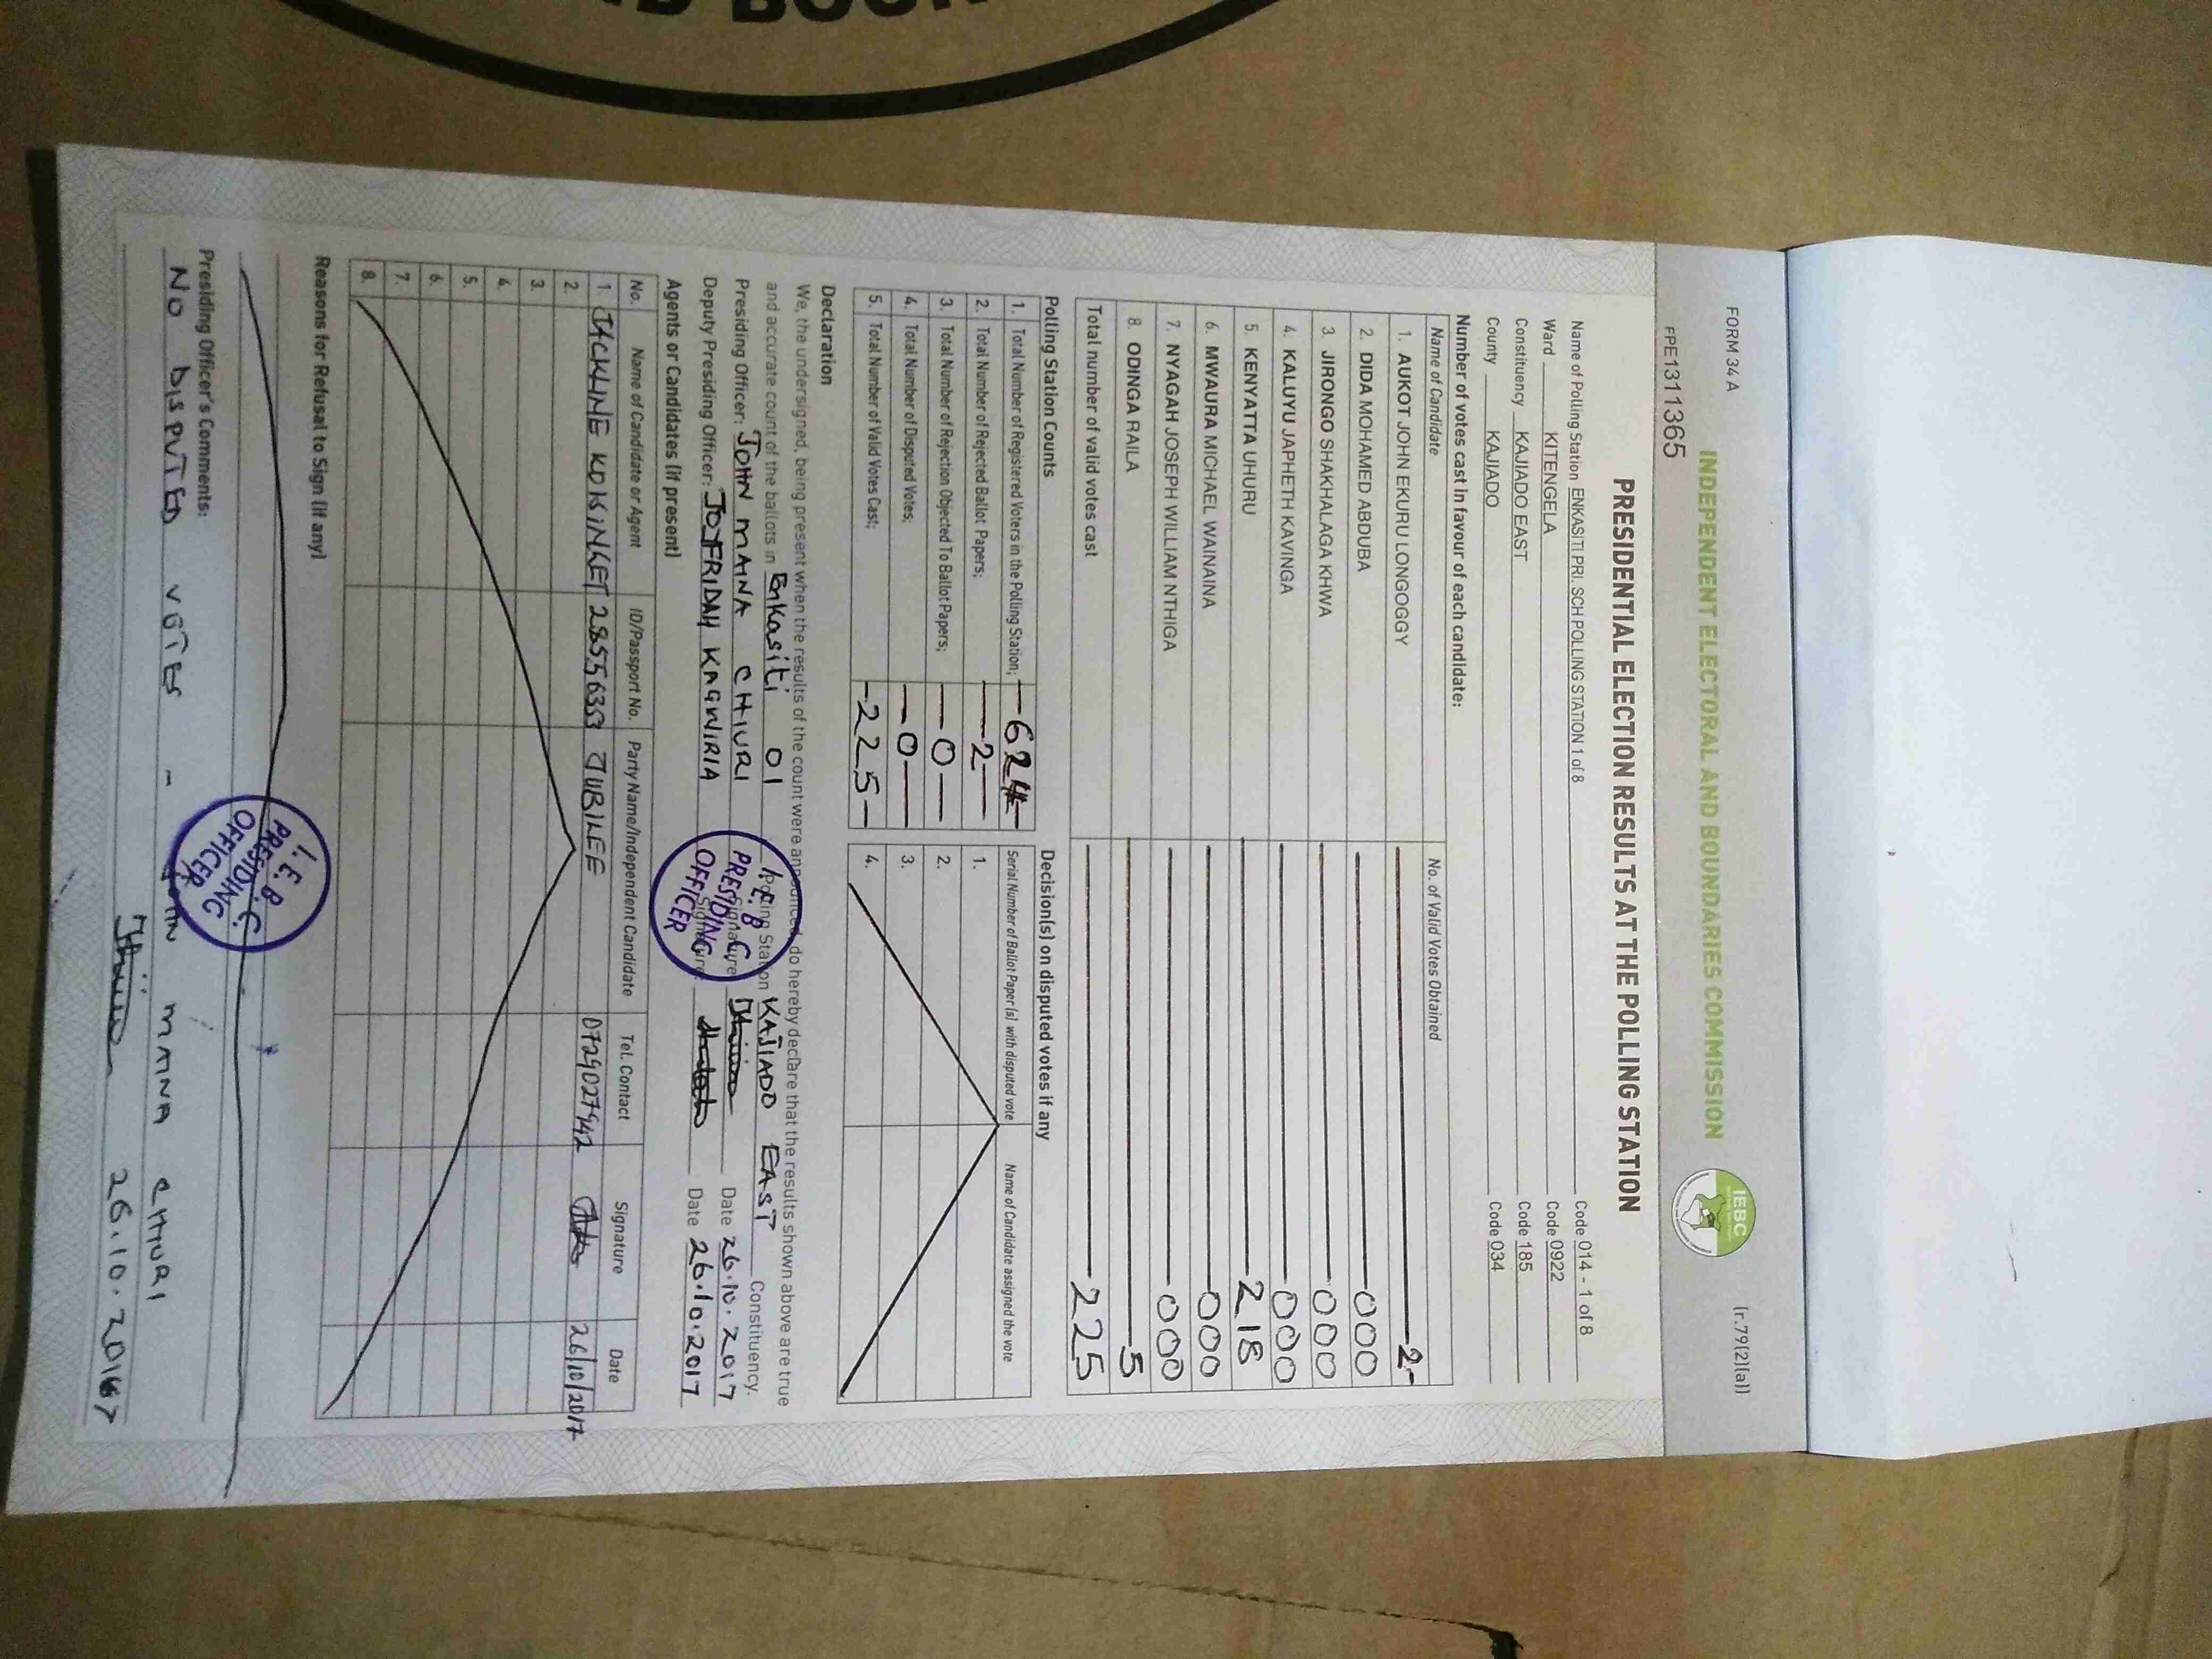 FORM 34 A
(r.79(2)(a))
INDEPENDENT ELECTORAL AND BOUNDARIES COMMISSION
IEBC
FPE1311365
PRESIDENTIAL ELECTION RESULTS AT THE POLLING STATION
Name of Polling Station ENKASITI PRI. SCH POLLING STATION 1 of 8 Code 014 - 1 of 8
Ward KITENGELA Code 0922
Constituency KAJIADO EAST Code 185
County KAJIADO Code 034
Number of votes cast in favour of each candidate:
Name of Candidate No. of Valid Votes Obtained
1. AUKOT JOHN EKURU LONGOGGY 2-
2. DIDA MOHAMED ABDUBA 000
3. JIRONGO SHAKHALAGA KHWA 000
4. KALUYU JAPHETH KAVINGA 000
5. KENYATTA UHURU 218
6. MWAURA MICHAEL WAINAINA 000
7. NYAGAH JOSEPH WILLIAM NTHIGA 000
8. ODINGA RAILA 5
Total number of valid votes cast 225
Polling Station Counts
1. Total Number of Registered Voters in the Polling Station; -624-
2. Total Number of Rejected Ballot Papers; -2-
3. Total Number of Rejection Objected To Ballot Papers; -0-
4. Total Number of Disputed Votes; -0-
5. Total Number of Valid Votes Cast; -225-
Decision(s) on disputed votes if any
Serial Number of Ballot Paper(s) with disputed vote Name of Candidate assigned the vote
1.
2.
3.
4.
Declaration
We, the undersigned, being present when the results of the count were announced, do hereby declare that the results shown above are true
and accurate count of the ballots in Enkasiti 01 Polling Station KAJIADO EAST Constituency.
Presiding Officer: JOHN MAINA CHIURI Signature Date 26.10.2017
Deputy Presiding Officer: JOYFRIDAH KAGWIRIA Signature Date 26.10.2017
I.E.B.C
PRESIDING
OFFICER
Agents or Candidates (if present)
No. Name of Candidate or Agent ID/Passport No. Party Name/Independent Candidate Tel. Contact Signature Date
1. JACKLINE KOKINGET JUBILEE 0729027942 26/10/2017
2.
3.
4.
5.
6.
7.
8.
Reasons for Refusal to Sign (if any)
I.E.B.C.
PRESIDING
OFFICER
Presiding Officer's Comments:
NO DISPUTED VOTES - JOHN MAINA CHIURI
26.10.2017